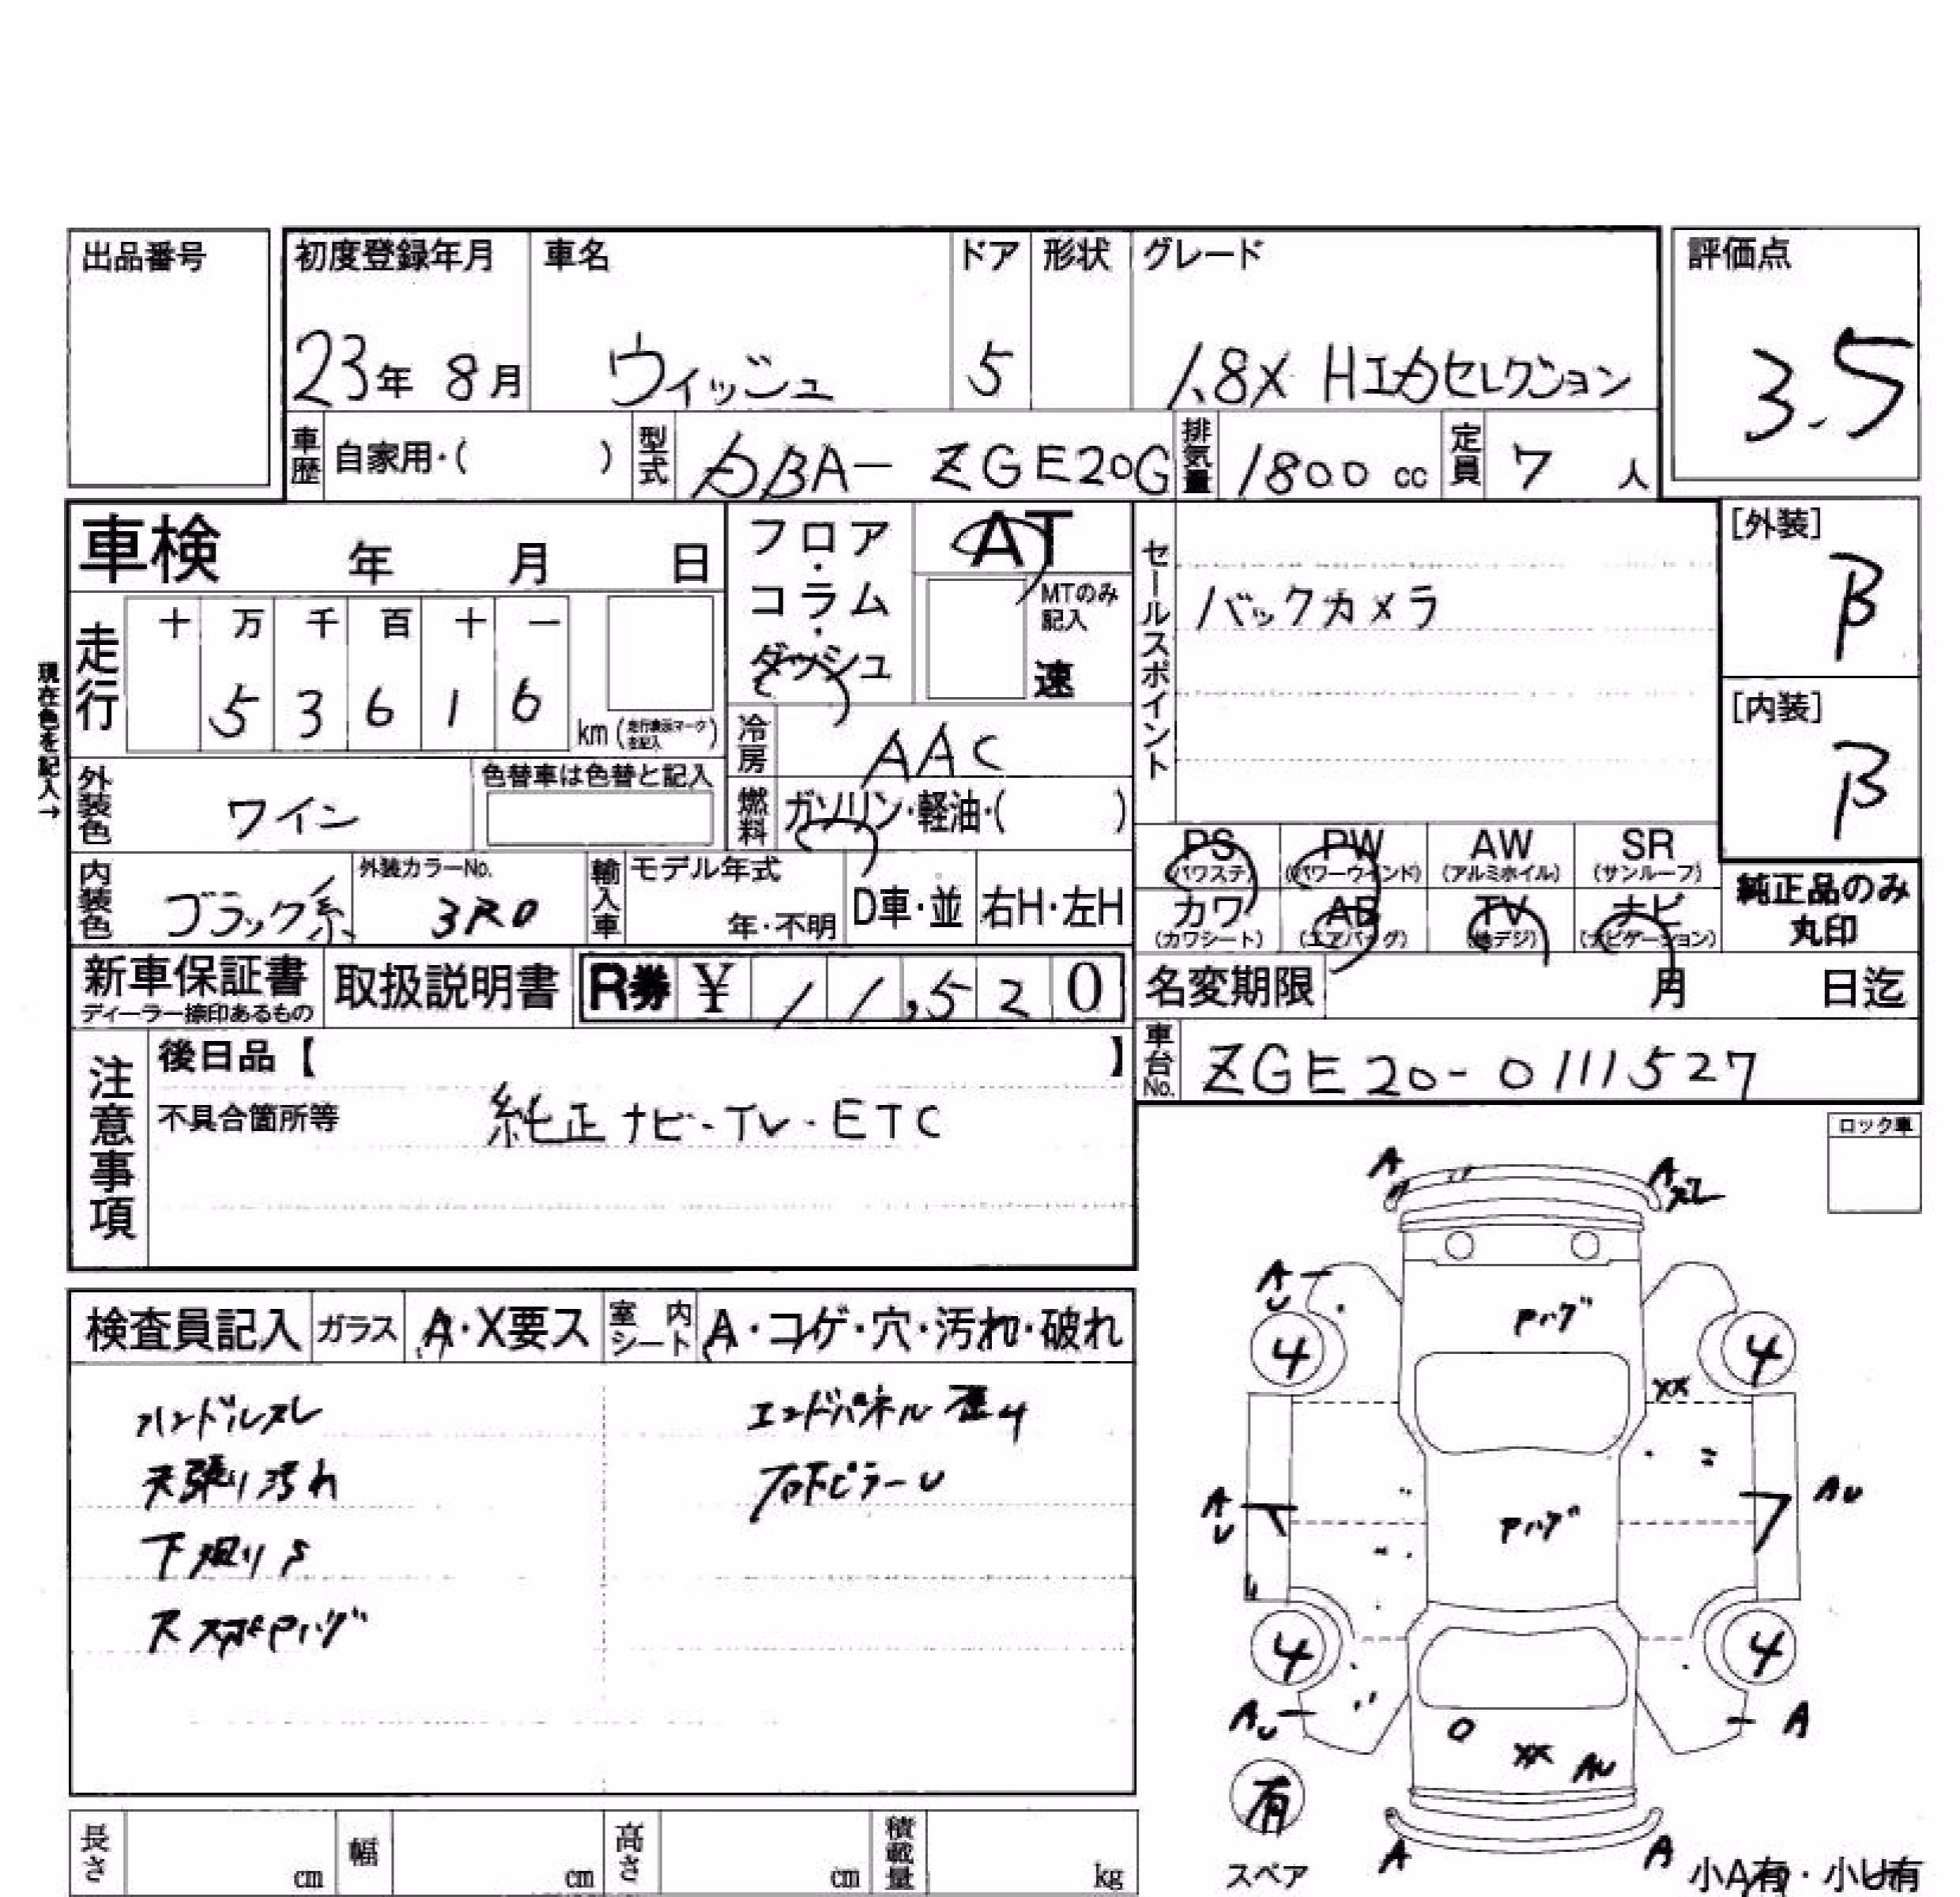 出品番号
初度登録年月 車名 ドア 形状 グレード 評価点
23年 8月 ウィッシュ 5 1.8X HIDセレクション 3.5
車歴 自家用・( ) 型式 DBA- ZGE20G 排気量 1800 cc 定員 7 人
車検 年 月 日
フロア・コラム・ダッシュ
AT
MTのみ記入
速
セールスポイント
バックカメラ
[外装]
B
[内装]
B
現在色を記入→
走行 十 万 千 百 十 一
5 3 6 1 6 km (走行表示マークを記入)
冷房 AAC
外装色 ワイン 色替車は色替と記入
燃料 ガソリン・軽油・( )
PS PW AW SR
(パワステ) (パワーウインド) (アルミホイル) (サンルーフ)
カワ AB TV ナビ
(カワシート) (エアバッグ) (地デジ) (ナビゲーション)
純正品のみ
丸印
内装色 ブラック系 外装カラーNo. 3R0 輸入車 モデル年式 年・不明 D車・並 右H・左H
新車保証書
ディーラー捺印あるもの
取扱説明書 R券 ¥ 11,520
名変期限 月 日迄
車台No. ZGE20-0111527
注意事項
後日品【 】
不具合箇所等 純正ナビ・TV・ETC
ロック車
検査員記入 ガラス A・X要ス 室内シート A・コゲ・穴・汚れ・破れ
ハンドルスレ エンドパネル歪み
天張り汚れ
下廻りS
A A
スレ
AU
Pハゲ
4 4
XX
AU AU
Pハゲ
4 4
AU A
XX AU
有
スペア
A A
小A有・小U有
長さ cm 幅 cm 高さ cm 積載量 kg